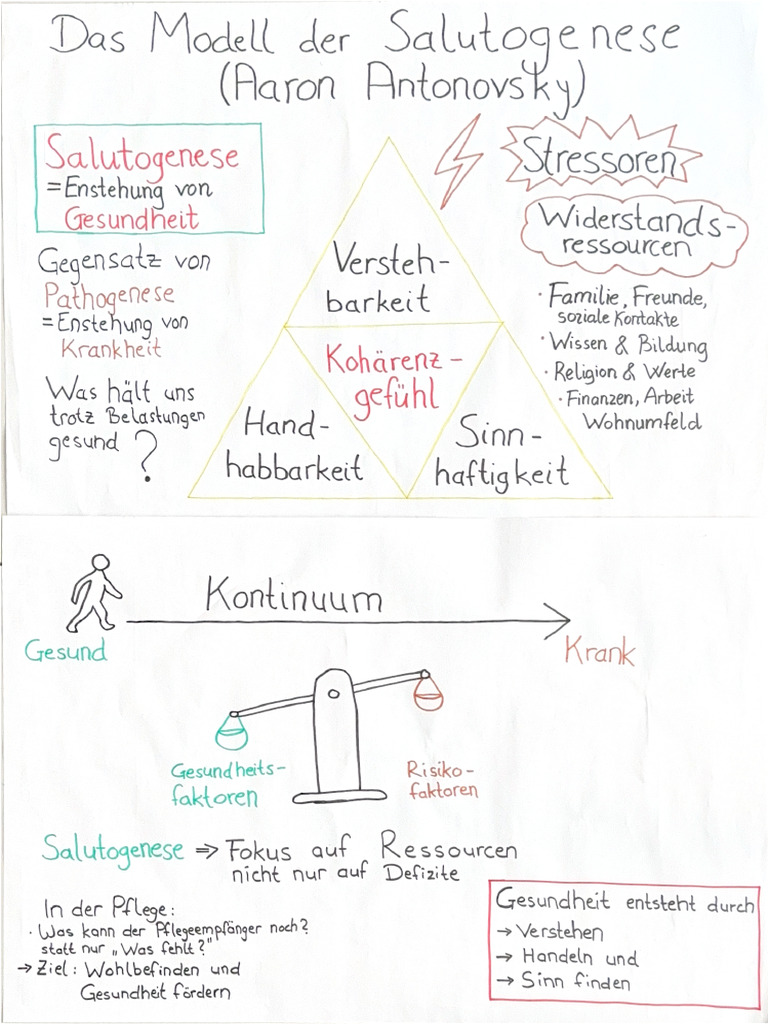 Das Modell der Salutogenese
(Aaron Antonovsky)
Salutogenese
= Enstehung von
Gesundheit
Gegensatz von
Pathogenese
= Enstehung von
Krankheit
Was hält uns
trotz Belastungen
gesund ?
Versteh-
barkeit
Kohärenz-
gefühl
Hand-
habbarkeit
Sinn-
haftigkeit
Stressoren
Widerstands-
ressourcen
· Familie, Freunde,
soziale Kontakte
· Wissen & Bildung
· Religion & Werte
· Finanzen, Arbeit
Wohnumfeld
Kontinuum
Gesund
Krank
Gesundheits-
faktoren
Risiko-
faktoren
Salutogenese => Fokus auf Ressourcen
nicht nur auf Defizite
In der Pflege:
· Was kann der Pflegeempfänger noch?
statt nur „Was fehlt?"
→ Ziel: Wohlbefinden und
Gesundheit fördern
Gesundheit entsteht durch
→ Verstehen
→ Handeln und
→ Sinn finden